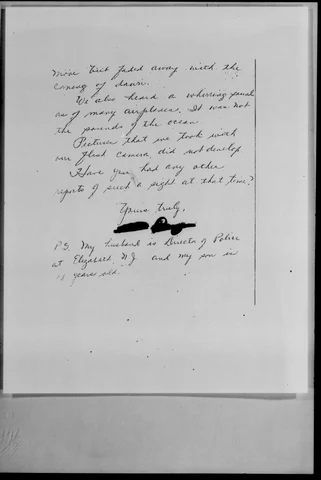 more but faded away with the
coming of dawn.
We also heard a whirring sound
as of many airplanes. It was not
the sounds of the ocean.
Pictures that we took with
our flash camera did not develop
Have you had any other
reports of such a sight at that time?
Yours truly,
P.S. My husband is Director of Police
at Elizabeth N.J. and my son is
years old.